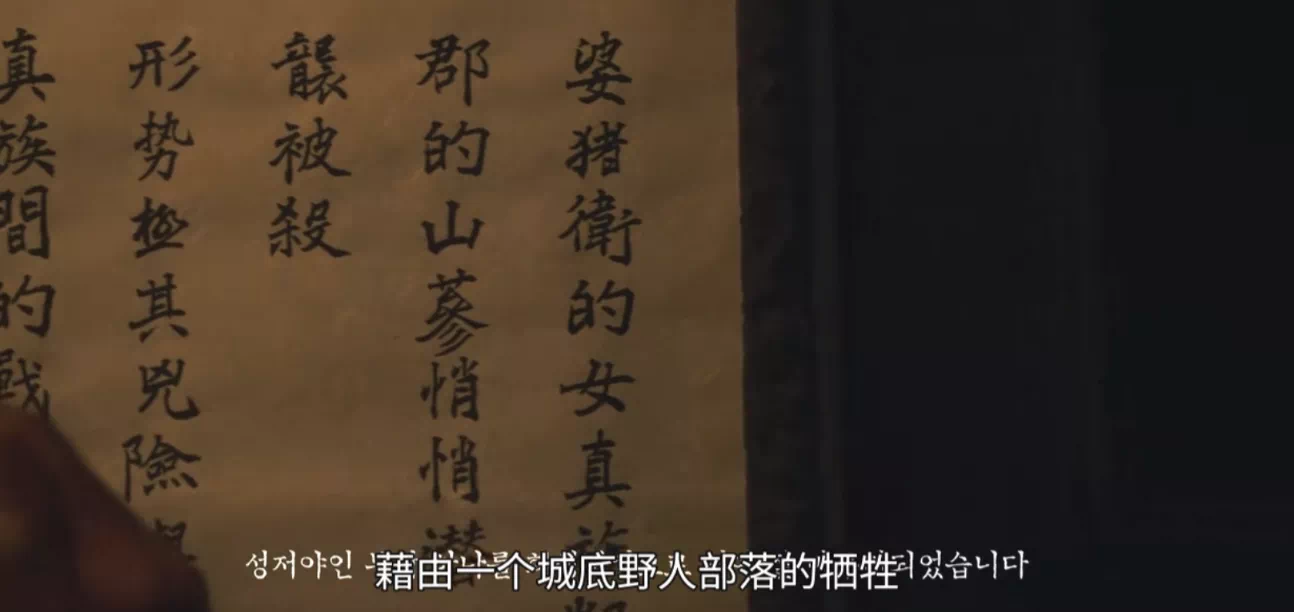 婆猪衛的女真族
郡的山蔘悄悄潛
襲被殺
形势極其兇險
真族間的戰
성저야인 되었습니다
藉由一个城底野人部落的牺牲